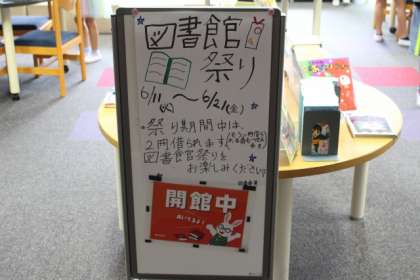 図書館
祭り
6/11(火)～6/21(金)
・祭り期間中は、
2冊借られます
図書館祭りを
お楽しみください
開館中